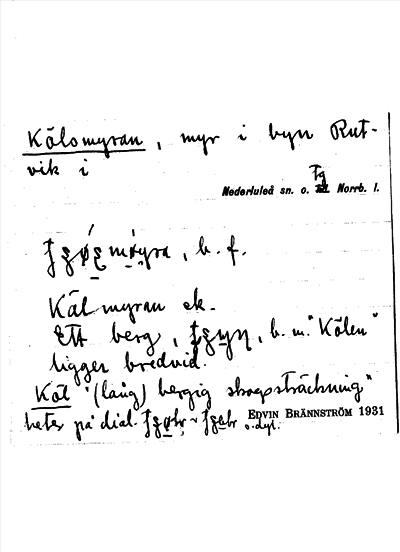 Kölomyran, myr i byn Rut-
vik i
Tg
Nederluleå sn. o. Norrb. l.
b. f.
Kälmyran ek.
Ett berg, b. m. "Kölen"
ligger bredvid.
Köl "(lång) bergig skogssträckning"
heter på dial.
o. dyl.
EDVIN BRÄNNSTRÖM 1931